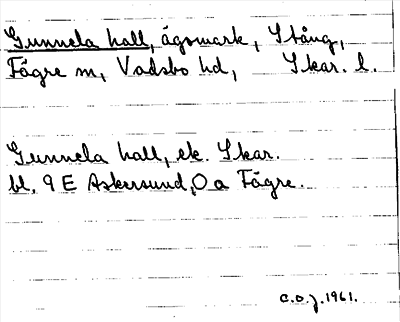 Gunnela hall, ägomark, Stång,
Fägre sn, Vadsbo hd, Skar. l.
Gunnela hall, ek. Skar.
bl. 9 E Askersund, O a Fägre.
C.O.J. 1961.